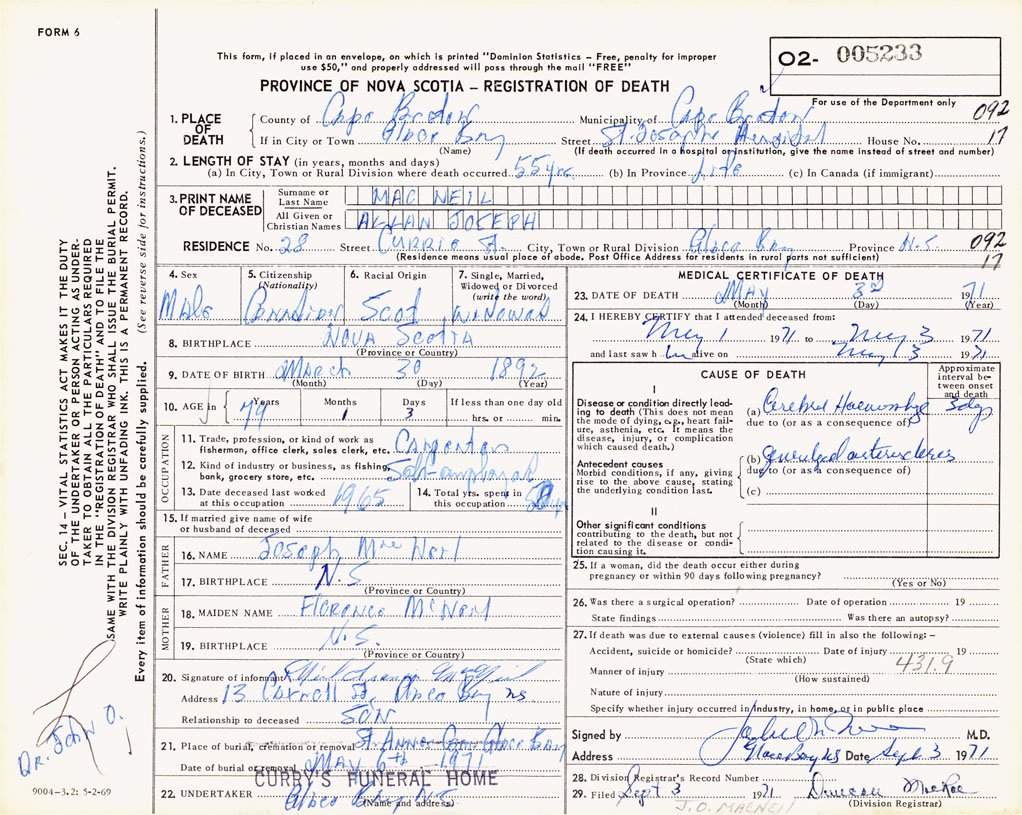 FORM 6
This form, if placed in an envelope, on which is printed "Dominion Statistics – Free, penalty for improper
use $50," and properly addressed will pass through the mail "FREE"
02- 005233
PROVINCE OF NOVA SCOTIA – REGISTRATION OF DEATH
For use of the Department only
1. PLACE OF DEATH County of Cape Breton Municipality of Cape Breton 092
If in City or Town Glace Bay Street St. Josephs Hospital House No. 17
(Name) (If death occurred in a hospital or institution, give the name instead of street and number)
2. LENGTH OF STAY (in years, months and days)
(a) In City, Town or Rural Division where death occurred 55 yrs. (b) In Province Life (c) In Canada (if immigrant)
3. PRINT NAME OF DECEASED Surname or Last Name MAC NEIL
All Given or Christian Names ALLAN JOSEPH
RESIDENCE No. 28 Street Currie St. City, Town or Rural Division Glace Bay Province N.S 092
(Residence means usual place of abode. Post Office Address for residents in rural parts not sufficient) 17
4. Sex Male
5. Citizenship (Nationality) Canadian
6. Racial Origin Scot
7. Single, Married, Widowed or Divorced (write the word) Widowed
8. BIRTHPLACE Nova Scotia
(Province or Country)
9. DATE OF BIRTH March 30 1892
(Month) (Day) (Year)
10. AGE in Years 79 Months 1 Days 3 If less than one day old
hrs. or min.
OCCUPATION
11. Trade, profession, or kind of work as
fisherman, office clerk, sales clerk, etc. Carpenter
12. Kind of industry or business, as fishing,
bank, grocery store, etc. Self-employed
13. Date deceased last worked
at this occupation 1965
14. Total yrs. spent in
this occupation
15. If married give name of wife
or husband of deceased
FATHER
16. NAME Joseph Mac Neil
17. BIRTHPLACE N.S
(Province or Country)
MOTHER
18. MAIDEN NAME Florence McNeil
19. BIRTHPLACE N.S.
(Province or Country)
20. Signature of informant
Address 13 St, Glace Bay NS
Relationship to deceased SON
21. Place of burial, cremation or removal St. Anns Cem Glace Bay
Date of burial or removal May 6th 1971
CURRY'S FUNERAL HOME
22. UNDERTAKER Glace Bay N.S
(Name and address)
MEDICAL CERTIFICATE OF DEATH
23. DATE OF DEATH May 3rd 1971
(Month) (Day) (Year)
24. I HEREBY CERTIFY that I attended deceased from:
May 1 1971 to May 3 1971
and last saw him alive on May 3 1971
CAUSE OF DEATH
Approximate interval between onset and death
I
Disease or condition directly leading to death (This does not mean the mode of dying, e.g., heart failure, asthenia, etc. It means the disease, injury, or complication which caused death.)
(a) Cerebral Haemorrhage 3 days
due to (or as a consequence of)
Antecedent causes
Morbid conditions, if any, giving rise to the above cause, stating the underlying condition last.
(b) generalized arteriosclerosis
due to (or as a consequence of)
(c)
II
Other significant conditions
contributing to the death, but not related to the disease or condition causing it.
25. If a woman, did the death occur either during
pregnancy or within 90 days following pregnancy?
(Yes or No)
26. Was there a surgical operation? Date of operation 19
State findings Was there an autopsy?
27. If death was due to external causes (violence) fill in also the following: –
Accident, suicide or homicide? Date of injury 19
(State which) 431.9
Manner of injury
(How sustained)
Nature of injury
Specify whether injury occurred in industry, in home, or in public place
Signed by M.D.
Address Glace Bay NS Date Sept. 3 1971
28. Division Registrar's Record Number
29. Filed Sept 3 1971 Duncan MacRae
(Division Registrar)
J.O. MACNEIL
SEC. 14 – VITAL STATISTICS ACT MAKES IT THE DUTY
OF THE UNDERTAKER OR PERSON ACTING AS UNDER-
TAKER TO OBTAIN ALL THE PARTICULARS REQUIRED
IN THE "REGISTRATION OF DEATH" AND TO FILE THE
SAME WITH THE DIVISION REGISTRAR WHO SHALL ISSUE THE BURIAL PERMIT.
WRITE PLAINLY WITH UNFADING INK. THIS IS A PERMANENT RECORD.
Every item of information should be carefully supplied. (See reverse side for instructions.)
DR. John O.
9004-3.2: 5-2-69